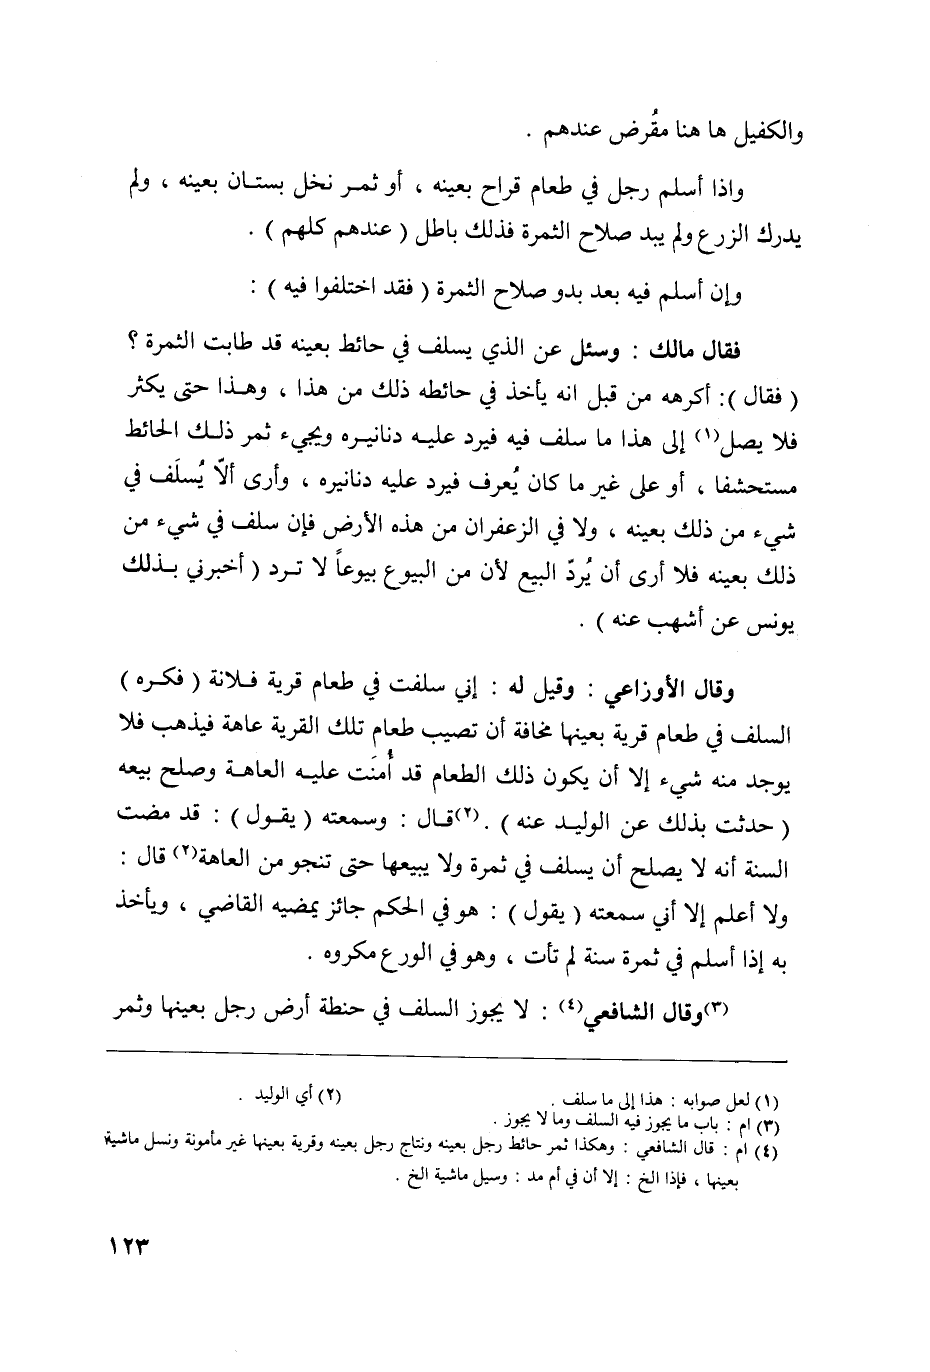 والكفيل ها هنا مقُرض عندهم .
واذا أسلم رجل في طعام قراح بعينه ، أو ثمر نخل بستان بعينه ، ولم
يدرك الزرع ولم يبد صلاح الثمرة فذلك باطل ( عندهم كلهم ) .
وإن أسلم فيه بعد بدو صلاح الثمرة ( فقد اختلفوا فيه ) :
فقال مالك : وسئل عن الذي يسلف في حائط بعينه قد طابت الثمرة ؟
( فقال ): أكرهه من قبل انه يأخذ في حائطه ذلك من هذا ، وهذا حتى يكثر
فلا يصل(١) إلى هذا ما سلف فيه فيرد عليه دنانيره ويجيء ثمر ذلك الحائط
مستحشفا ، أو على غير ما كان يُعرف فيرد عليه دنانيره ، وأرى ألاّ يُسلَف في
شيء من ذلك بعينه ، ولا في الزعفران من هذه الأرض فإن سلف في شيء من
ذلك بعينه فلا أرى أن يُردّ البيع لأن من البيوع بيوعاً لا ترد ( أخبرني بذلك
يونس عن أشهب عنه ) .
وقال الأوزاعي : وقيل له : إني سلفت في طعام قرية فلانة ( فكره )
السلف في طعام قرية بعينها مخافة أن تصيب طعام تلك القرية عاهة فيذهب فلا
يوجد منه شيء إلا أن يكون ذلك الطعام قد أُمنَت عليه العاهة وصلح بيعه
( حدثت بذلك عن الوليد عنه ) . (٢)قال : وسمعته ( يقول ) : قد مضت
السنة أنه لا يصلح أن يسلف في ثمرة ولا يبيعها حتى تنجو من العاهة(٢) قال :
ولا أعلم إلا أني سمعته ( يقول ) : هو في الحكم جائز يمضيه القاضي ، ويأخذ
به إذا أسلم في ثمرة سنة لم تأت ، وهو في الورع مكروه .
(٣)وقال الشافعي(٤) : لا يجوز السلف في حنطة أرض رجل بعينها وثمر
(١) لعل صوابه : هذا إلى ما سلف . (٢) أي الوليد .
(٣) ام : باب ما يجوز فيه السلف وما لا يجوز .
(٤) ام : قال الشافعي : وهكذا ثمر حائط رجل بعينه ونتاج رجل بعينه وقرية بعينها غير مأمونة ونسل ماشية
بعينها ، فإذا الخ : إلا أن في أم مد : وسيل ماشية الخ .
١٢٣